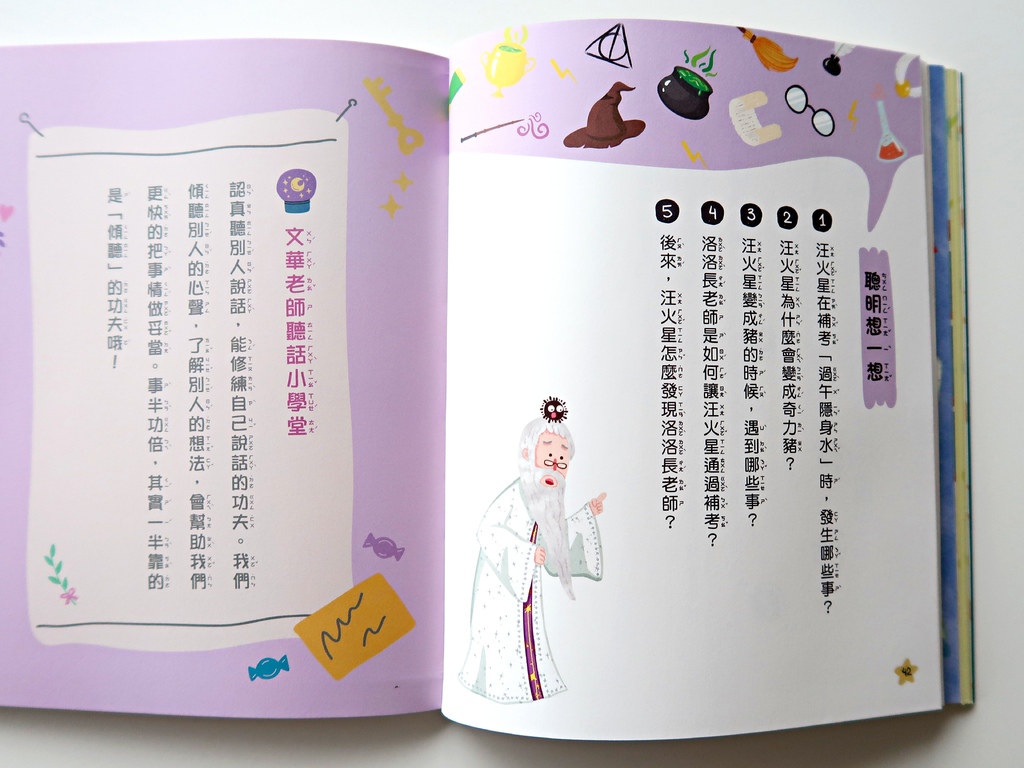 聰明想一想
1 汪火星在補考「過午隱身水」時，發生哪些事？
2 汪火星為什麼會變成奇力豬？
3 汪火星變成豬的時候，遇到哪些事？
4 洛洛長老師是如何讓汪火星通過補考？
5 後來，汪火星怎麼發現洛洛長老師？
42
文華老師聽話小學堂
認真聽別人說話，能修練自己說話的功夫。我們
傾聽別人的心聲，了解別人的想法，會幫助我們
更快的把事情做妥當。事半功倍，其實一半靠的
是「傾聽」的功夫哦！